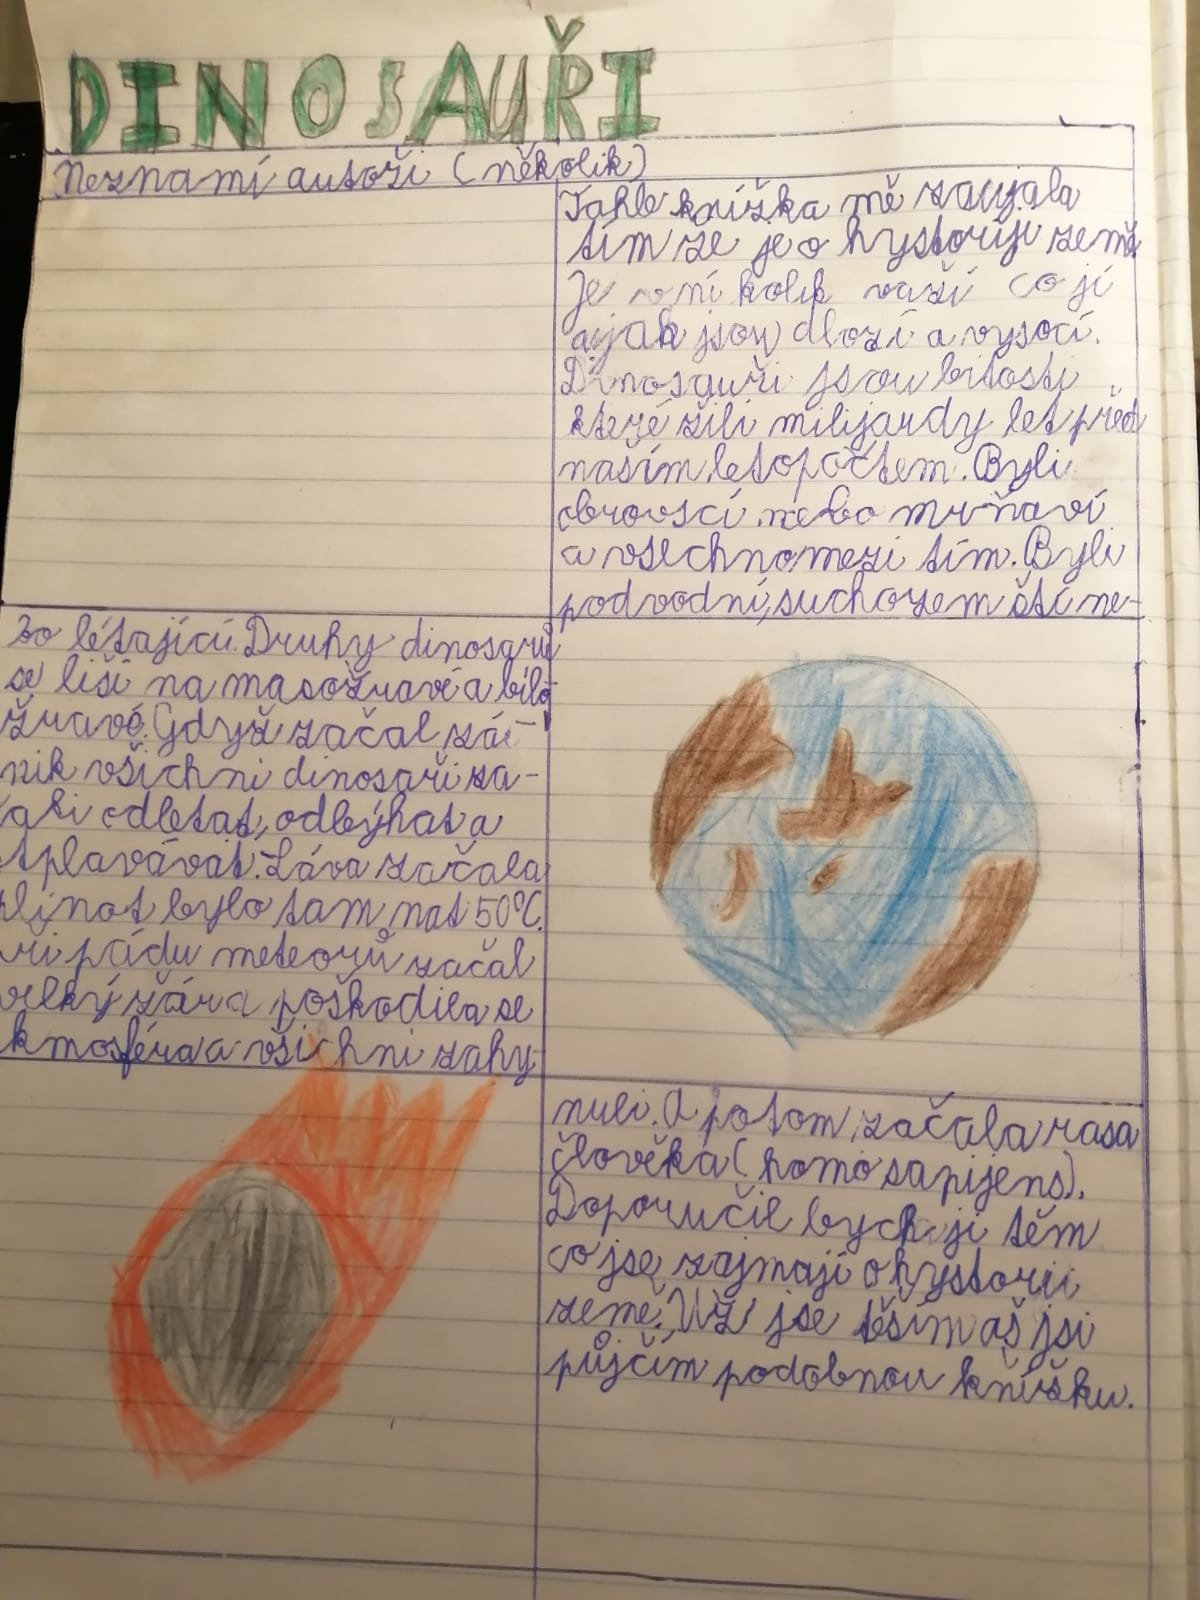 DINOSAUŘI
Neznamí autoři (několik)
Tahle knížka mě zaujala
tím že je o hystoriji země
Je v ní kolik važí co jí
a jak jsou dlozí a vysocí.
Dinosauři jsou bitosti
které žili milijardy let před
naším letopočtem. Byli
obrovscí nebo mrňaví
a všechno mezi tím. Byli
podvodní, suchozemští ne-
bo létající. Druhy dinosaurů
se liší na masožravé a bílo
žravé. Gdyž začal zá-
nik všichni dinosaři za-
čali odletat, odbýhat a
tplavávat. Láva začala
plínot bylo tam nat 50°C.
ři pádu meteorů začal
velký žár a poškodila se
kmosféra a všichni zahy-
nuli. A potom začala rasa
člověka (homo sapijens).
Doporučil bych ji těm
co jse zajmají o hystorii
země. Už jse těším aš jsi
půjčím podobnou knížku.